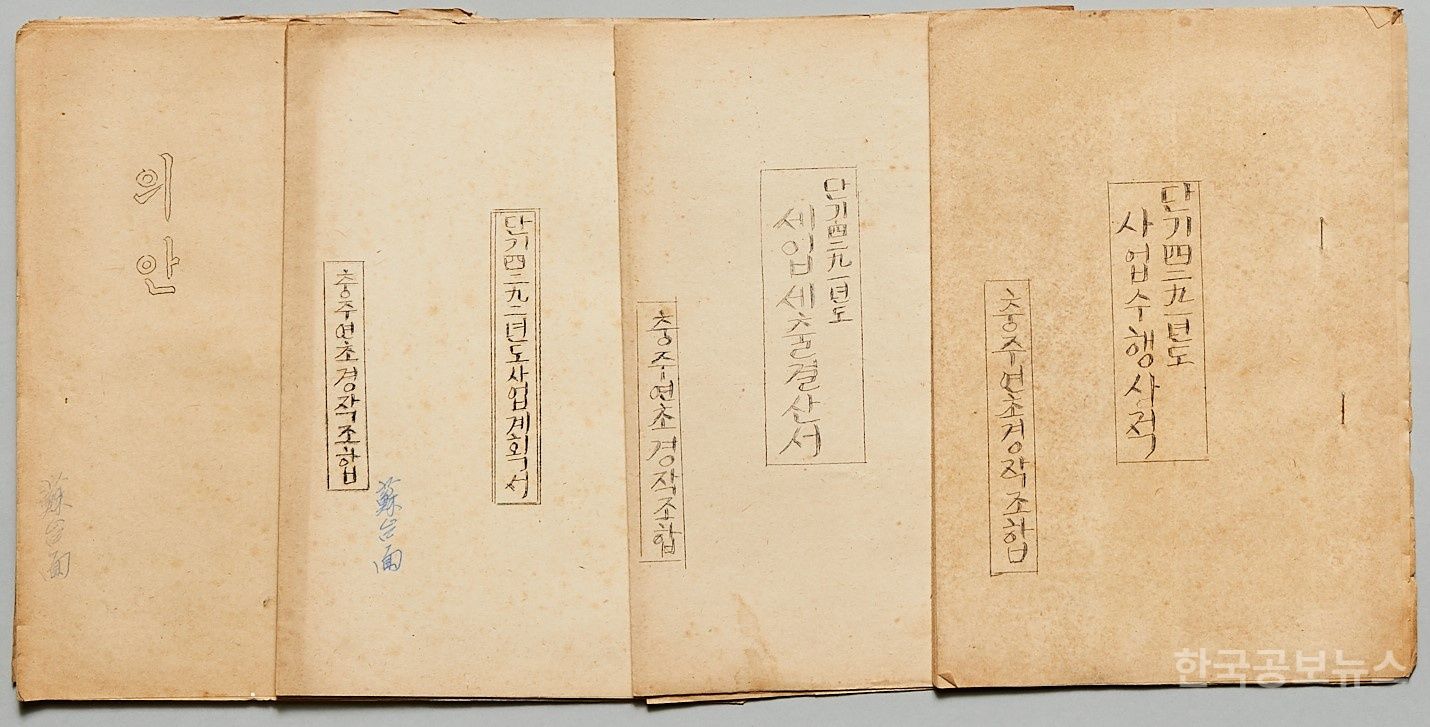 의안
蘇台面
단기四二九二년도사업계획서
충주연초경작조합
蘇台面
단기四二九一년도
세입세출결산서
충주연초경작조합
단기四二九一년도
사업수행사적
충주연초경작조합
한국공보뉴스